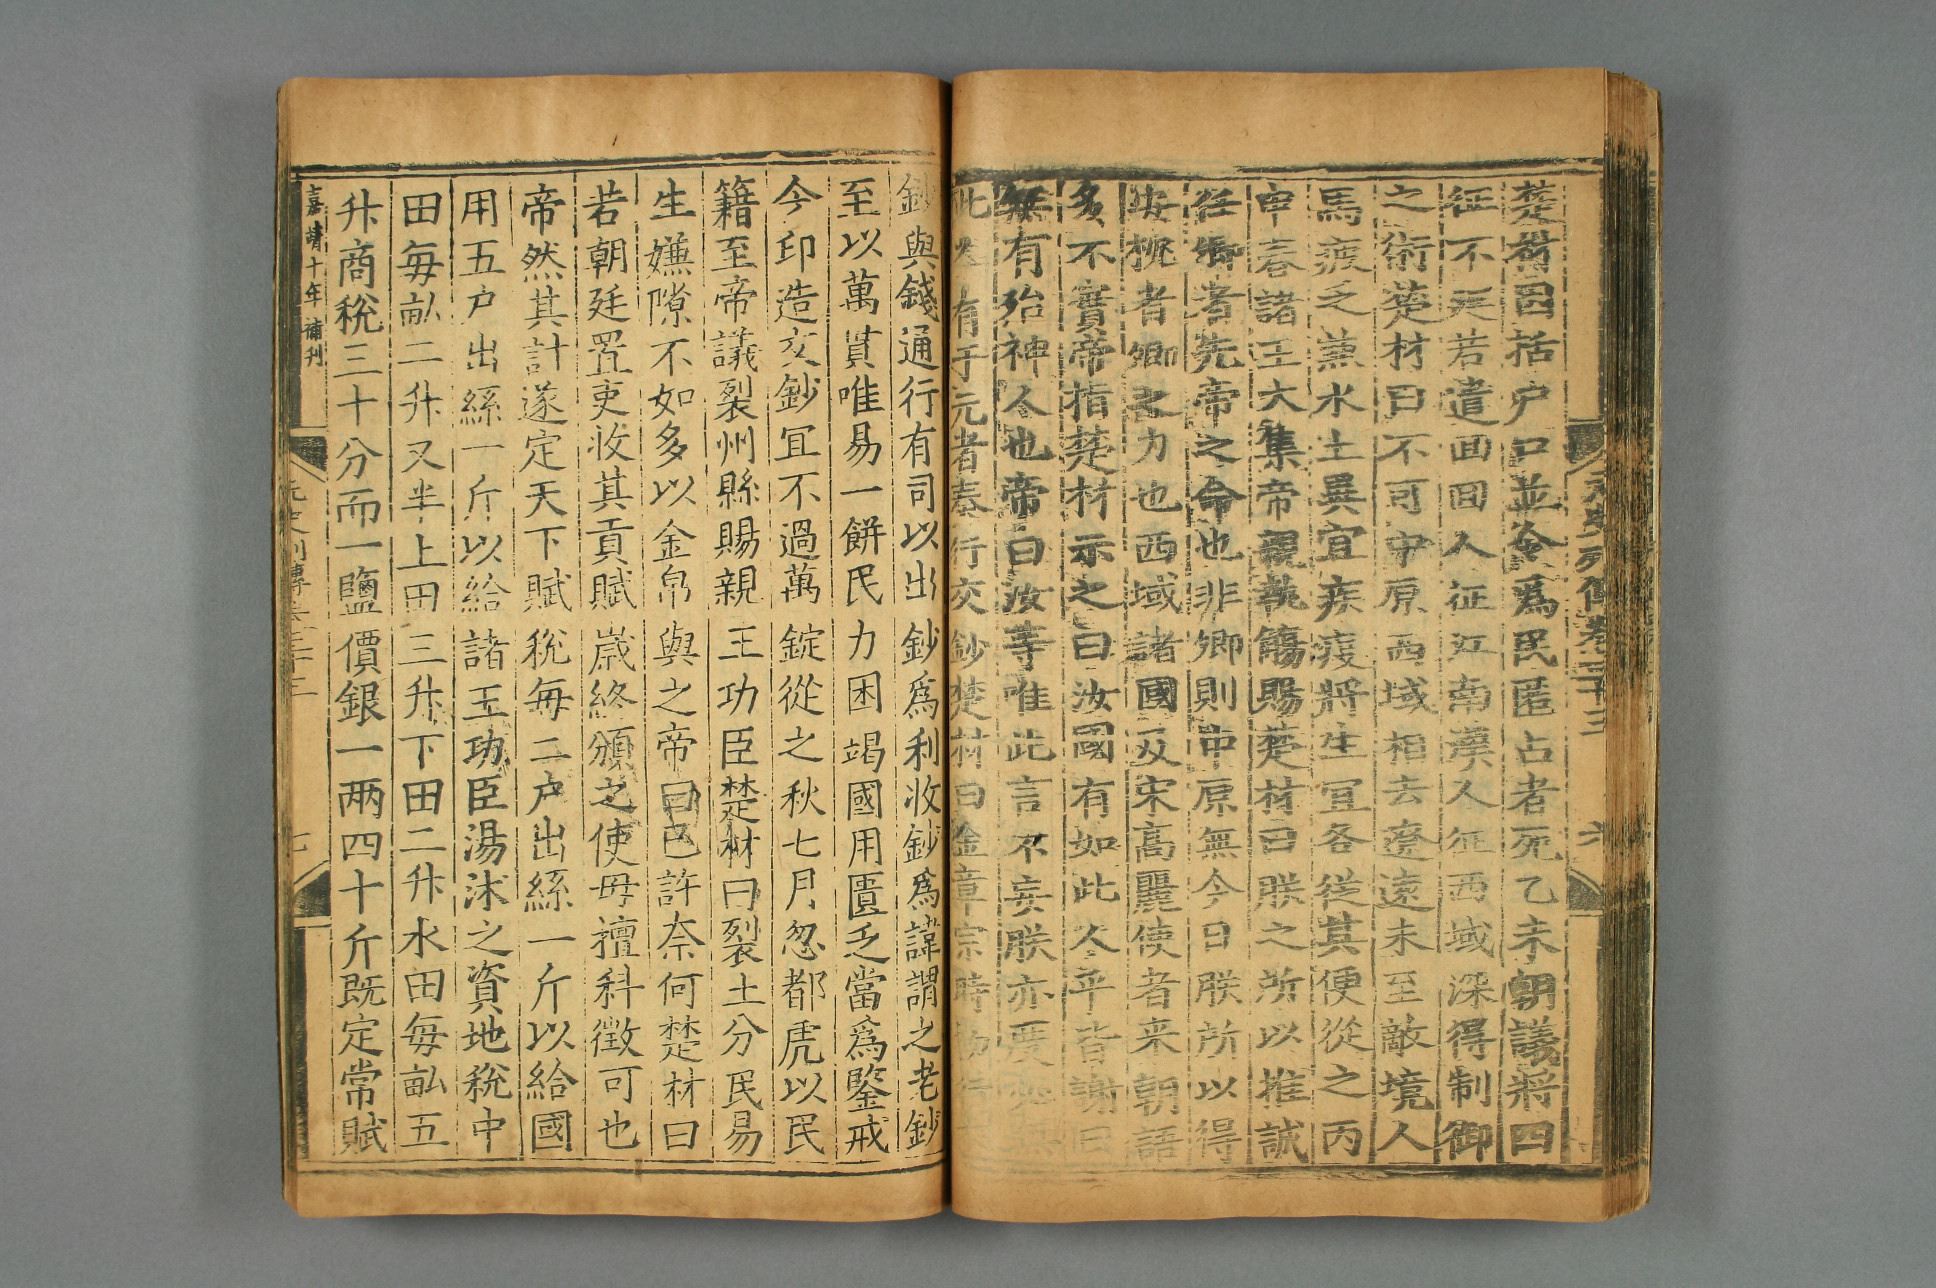 元史列傳卷三十三 六
楚材因括户口並令爲民匿占者死乙未朝議將四
征不廷若遣囬囬人征江南漢人征西域深得制御
之術楚材曰不可中原西域相去遼遠未至敵境人
馬疲乏兼水土異宜疾疫將生宜各從其便從之丙
申春諸王大集帝親執觴賜楚材曰朕之所以推誠
任卿者先帝之命也非卿則中原無今日朕所以得
安枕者卿之力也西域諸國及宋高麗使者来朝語
多不實帝指楚材示之曰汝國有如此人乎皆謝曰
無有殆神人也帝曰汝等唯此言不妄朕亦度必無
此人有于元者奏行交鈔楚材曰金章宗時初行
鈔與錢通行有司以出鈔爲利收鈔爲諱謂之老鈔
至以萬貫唯易一餅民力困竭國用匱乏當爲鑒戒
今印造交鈔宜不過萬錠從之秋七月忽都虎以民
籍至帝議裂州縣賜親王功臣楚材曰裂土分民易
生嫌隙不如多以金帛與之帝曰已許奈何楚材曰
若朝廷置吏收其貢賦歲終頒之使毋擅科徵可也
帝然其計遂定天下賦稅每二户出絲一斤以給國
用五户出絲一斤以給諸王功臣湯沐之資地稅中
田每畝二升又半上田三升下田二升水田每畝五
升商稅三十分而一鹽價銀一兩四十斤既定常賦
嘉靖十年補刊
元史列傳卷三十三 七